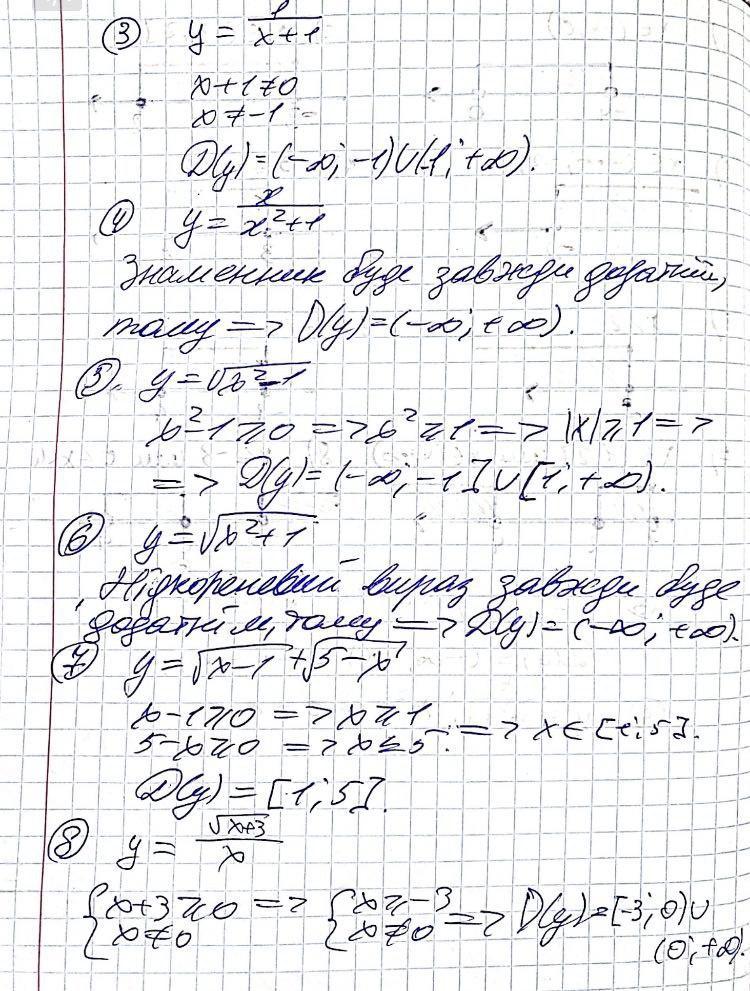 ③ y = 1/(x+1)
x+1≠0
x≠-1
D(y)=(-∞; -1)∪(-1; +∞).
④ y = x/(x²+1)
Знаменник буде завжди додатній,
тому => D(y)=(-∞; +∞).
⑤. y=√(x²-1)
x²-1≥0 => x²≥1 => |x|≥1 =>
=> D(y)=(-∞; -1]∪[1; +∞).
⑥ y=√(x²+1)
Підкореневий вираз завжди буде
додатнім, тому => D(y)=(-∞; +∞).
⑦ y=√(x-1)+√(5-x)
x-1≥0 => x≥1
5-x≥0 => x≤5 . => x∈[1; 5].
D(y)=[1; 5].
⑧ y = √(x+3)/x
{x+3≥0 => {x≥-3 => D(y)=[-3; 0)∪
{x≠0 {x≠0 (0; +∞).